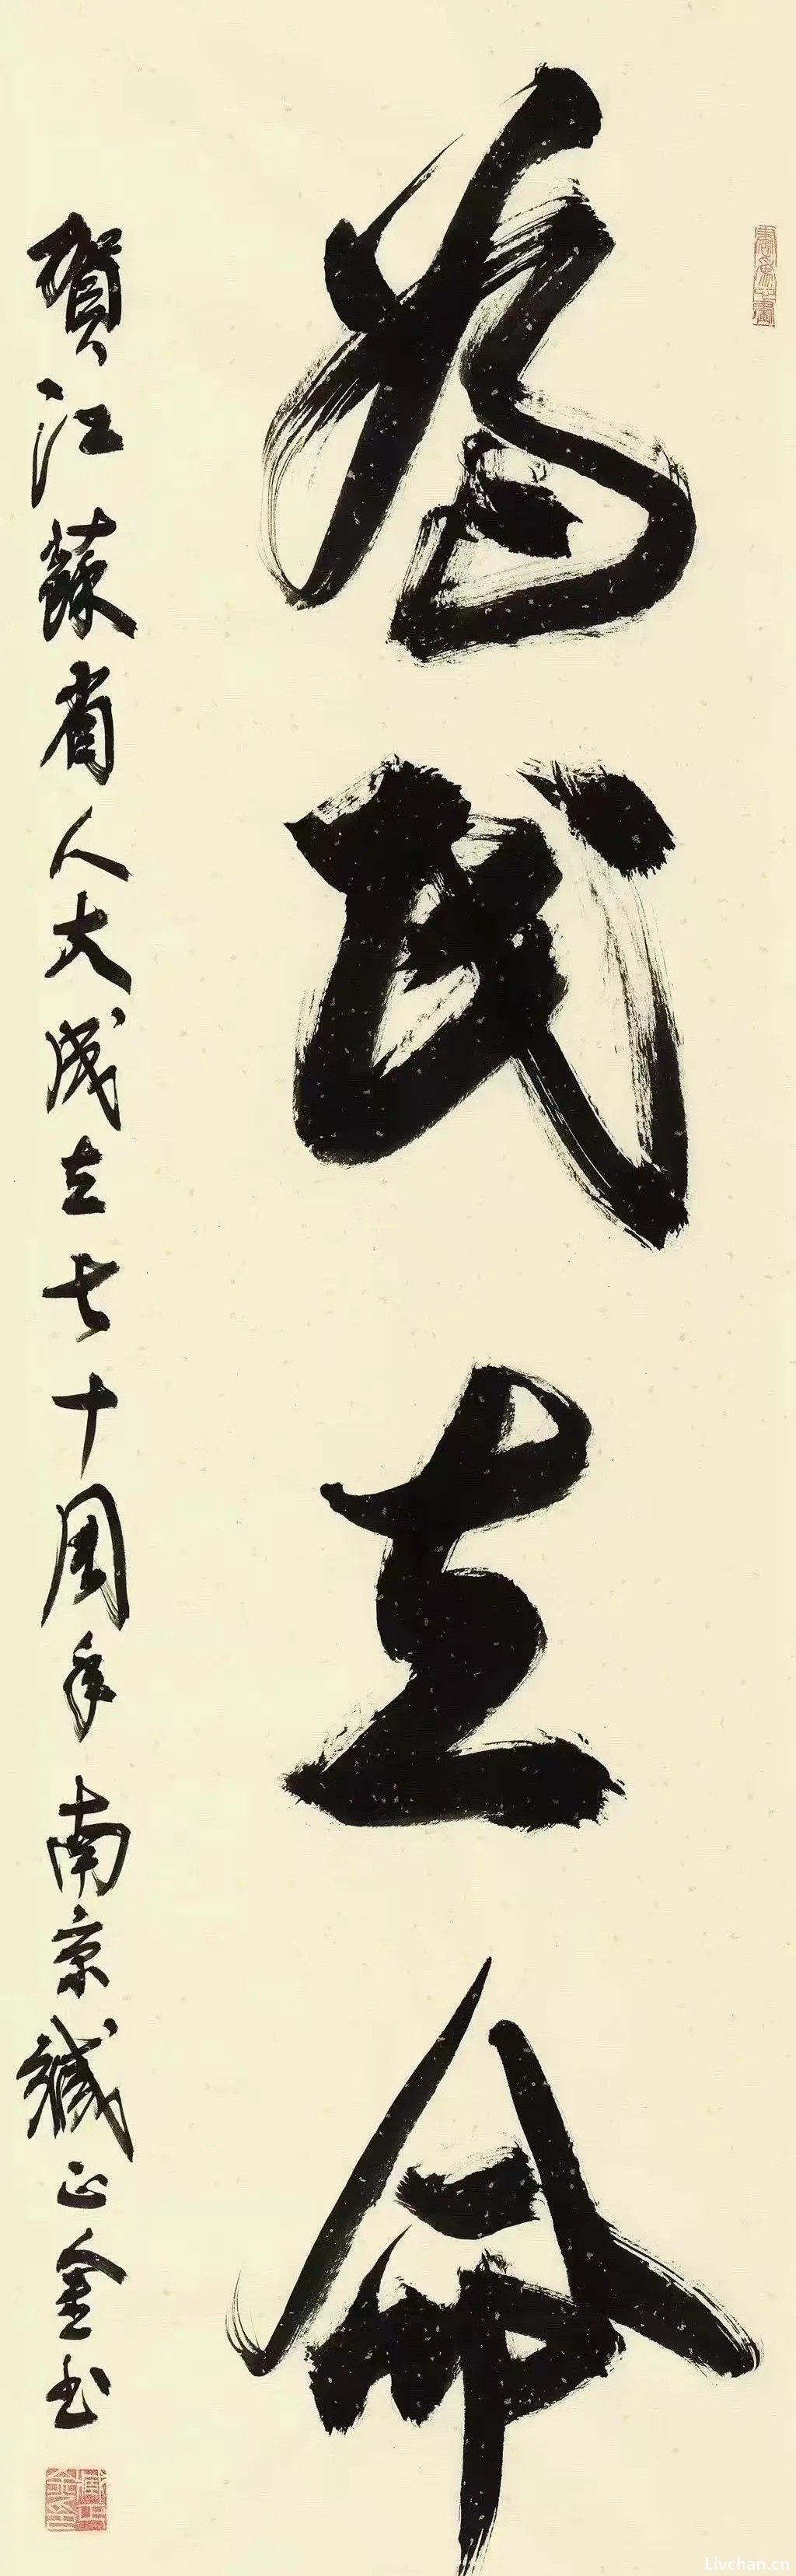 为民立命
贺江蘇省人大成立七十周年南京臧正金书
Livchan.cn